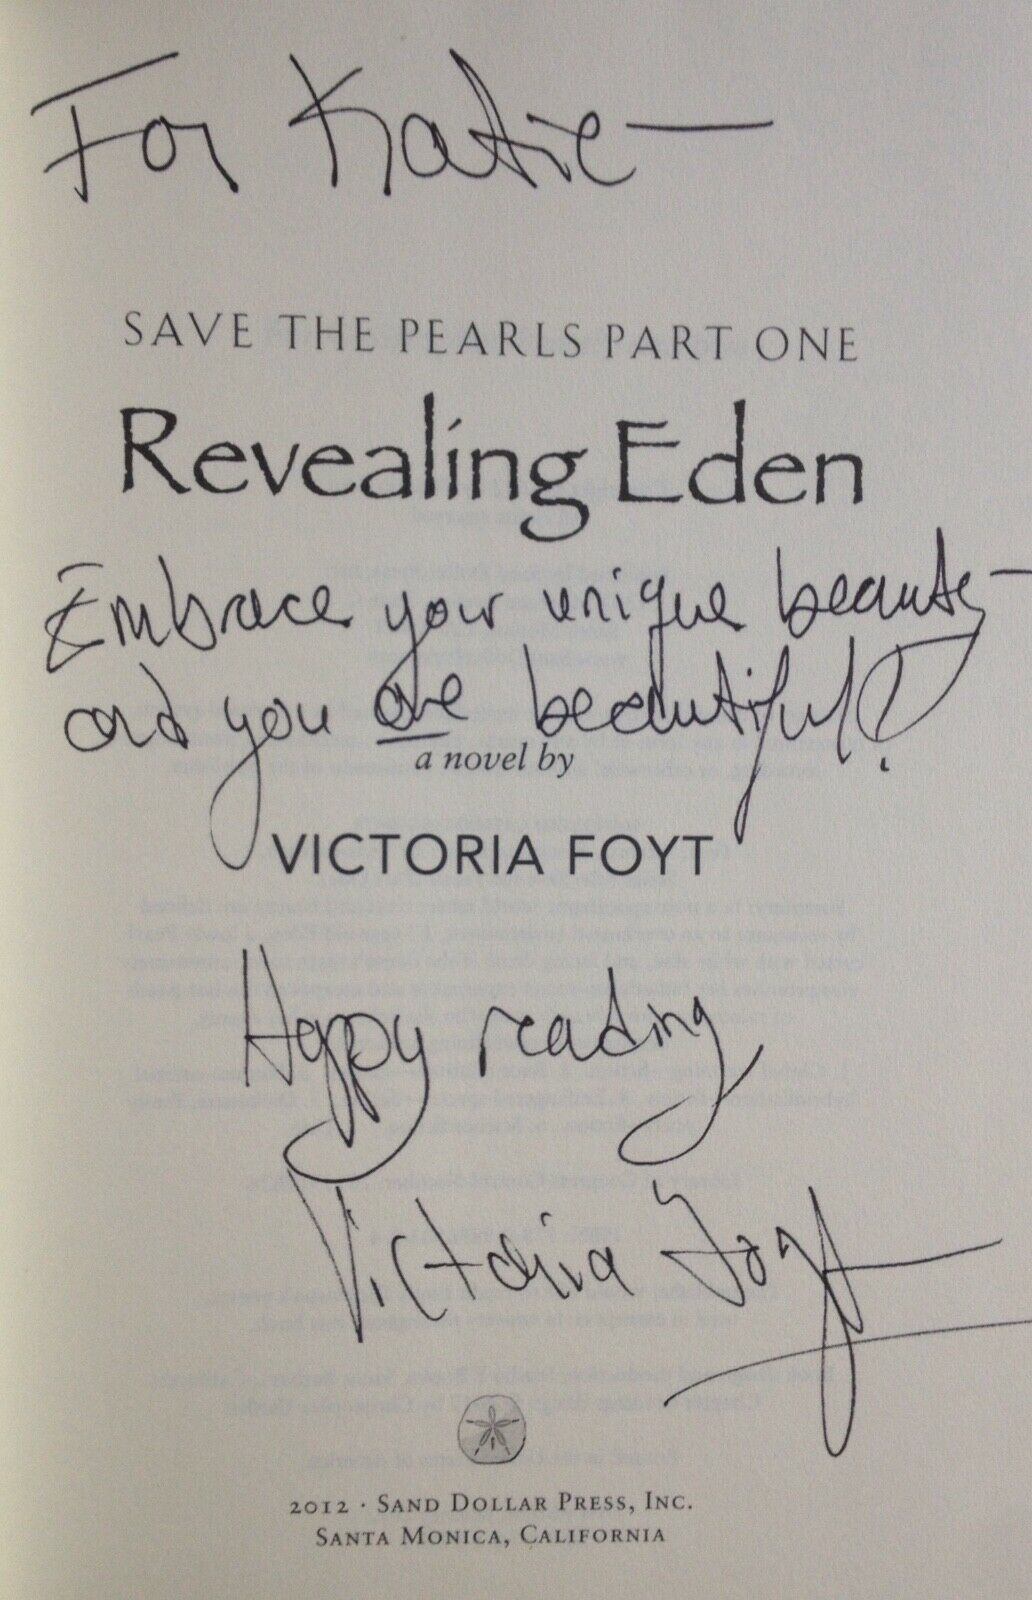 For Katie —
SAVE THE PEARLS PART ONE
Revealing Eden
Embrace your unique beauty —
and you are beautiful!
a novel by
VICTORIA FOYT
Happy reading
Victoria Foyt
2012 · SAND DOLLAR PRESS, INC.
SANTA MONICA, CALIFORNIA